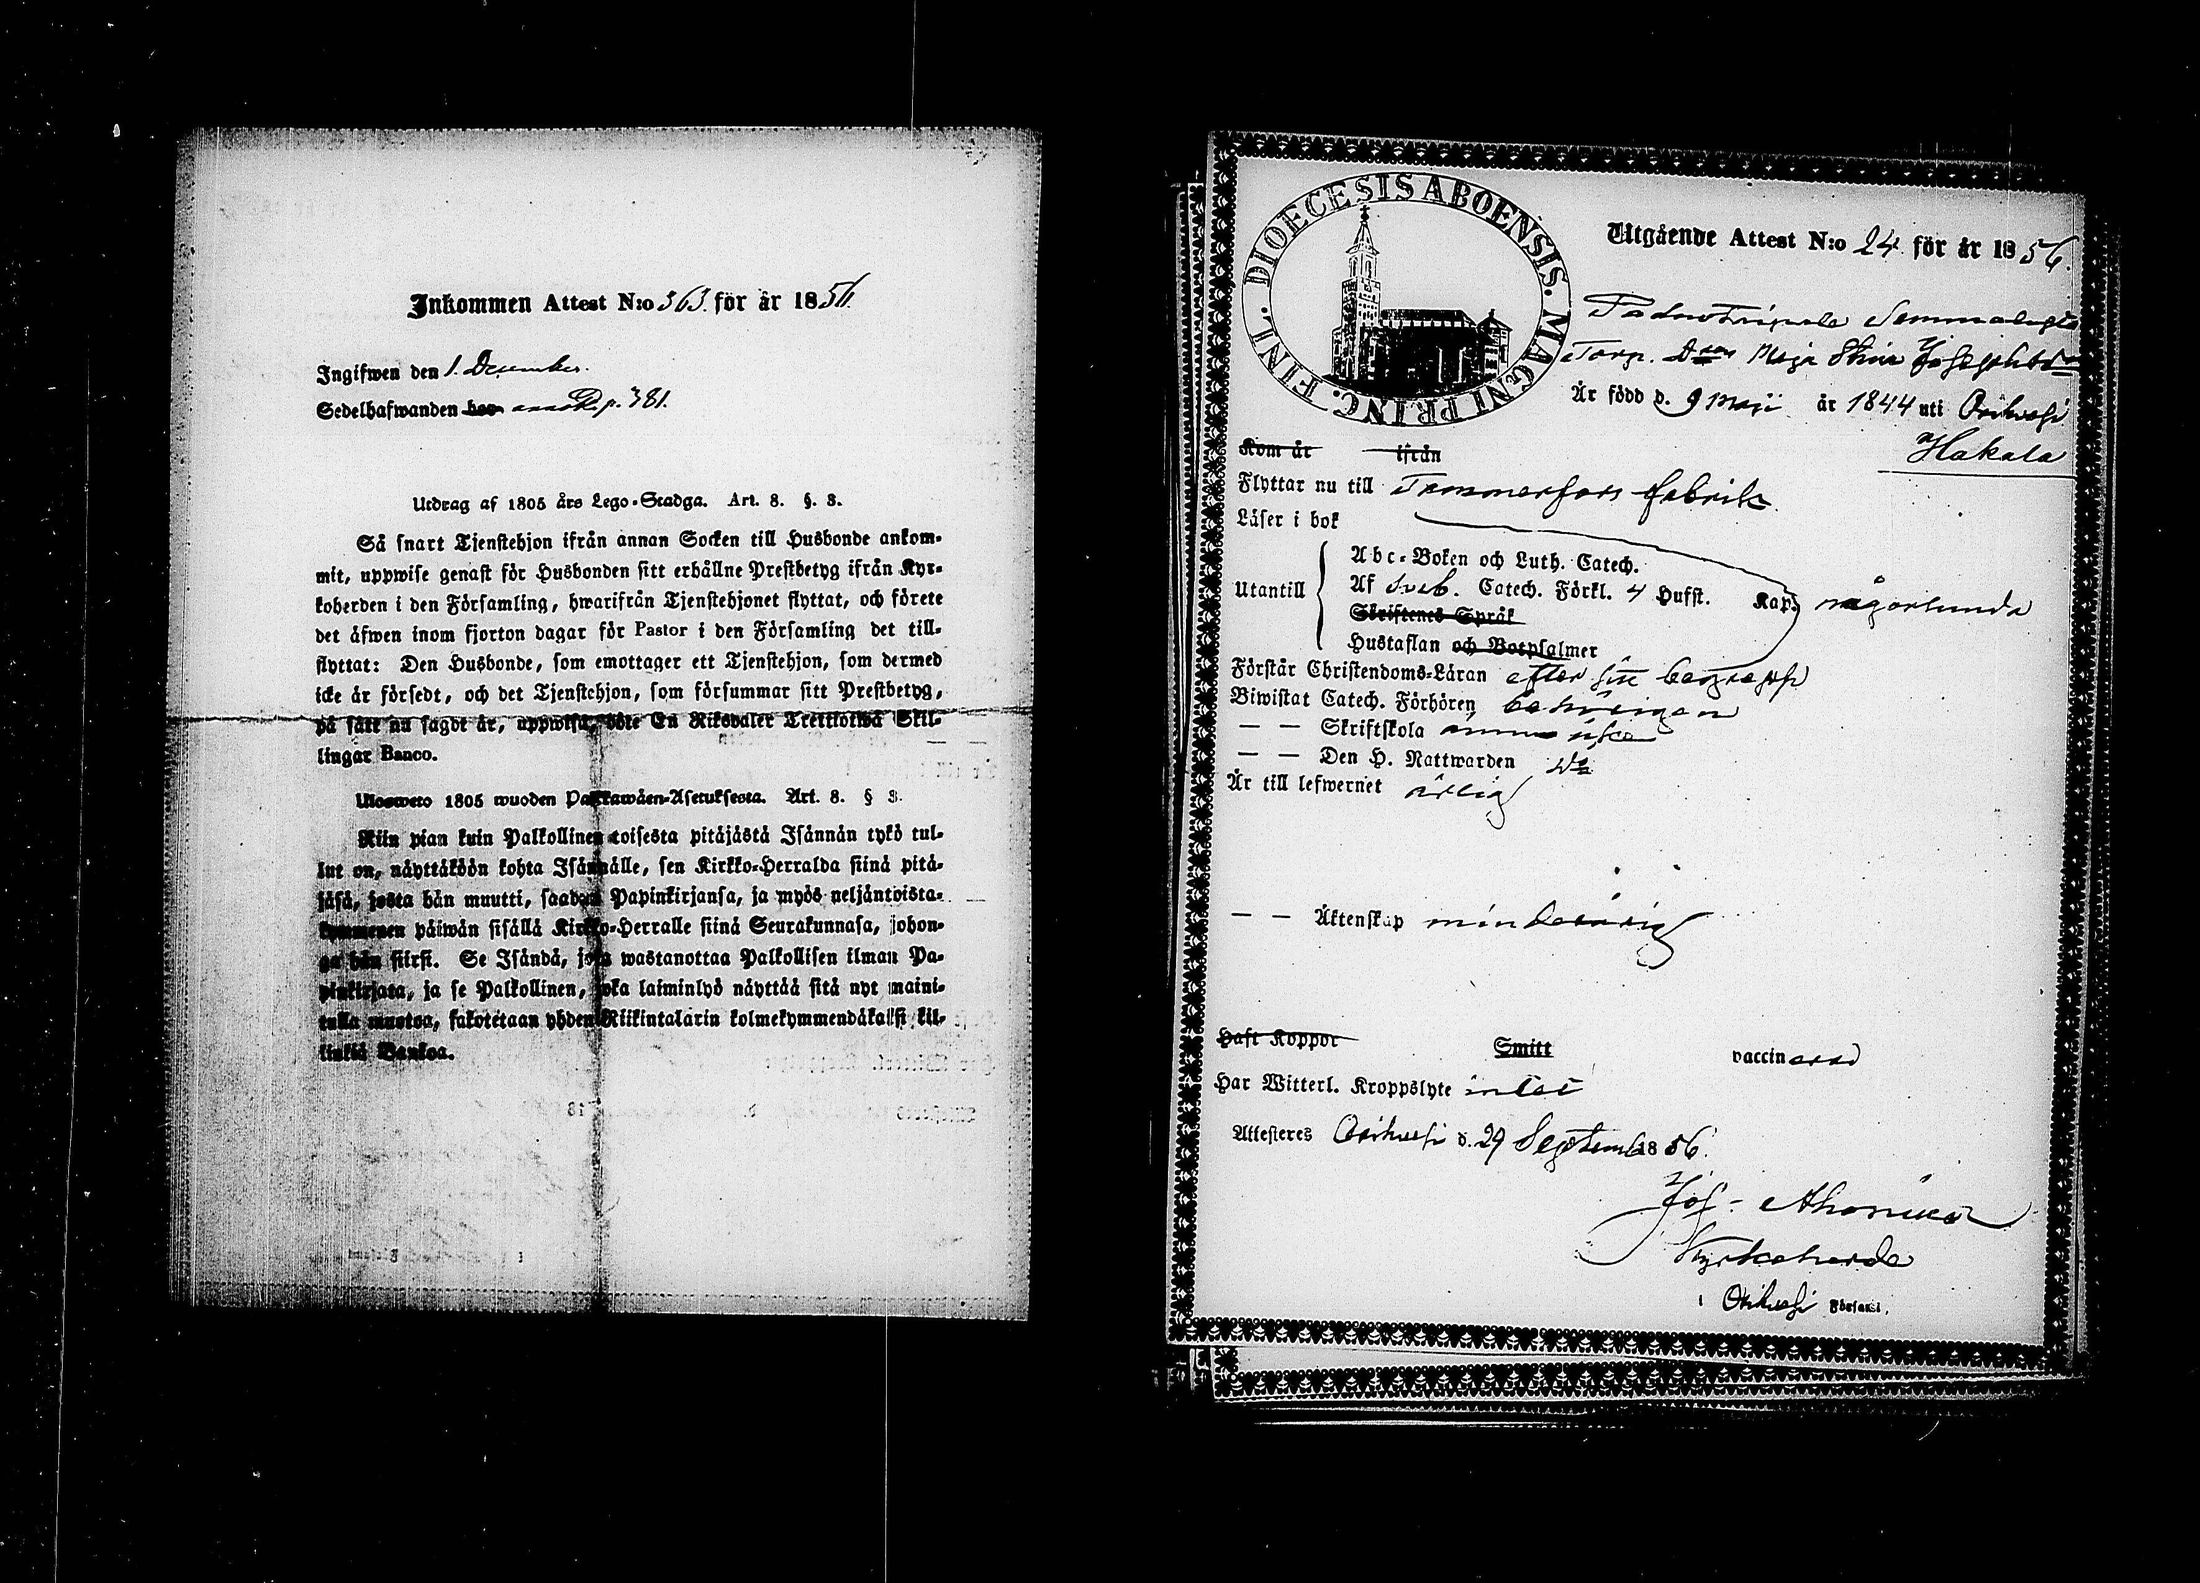 Inkommen Attest N:o 363. för år 1856.
Ingifwen den 1. December.
Sedelhafwanden hos p. 381.
Utdrag af 1805 års Lego-Stadga. Art. 8. §. 3.
Så snart Tjenstehjon ifrån annan Socken till Husbonde ankom-
mit, uppwise genast för Husbonden sitt erhållne Prestbetyg ifrån Kyr-
koherden i den Församling, hwarifrån Tjenstehjonet flyttat, och förete
det äfwen inom fjorton dagar för Pastor i den Församling det till-
flyttat: Den Husbonde, som emottager ett Tjenstehjon, som dermed
icke är försedt, och det Tjenstehjon, som försummar sitt Prestbetyg,
på sätt nu sagdt är, uppwisa, böte En Riksdaler Trettiotwå Skil-
lingar Banco.
Ulosweto 1805 wuoden Palkawäen-Asetuksesta. Art. 8. § 3.
Niin pian kuin Palkollinen toisesta pitäjästä Isännän tykö tul-
lut on, näyttäköön kohta Isännälle, sen Kirkko-Herralda siinä pitä-
jäsä, josta hän muutti, saadun Papinkirjansa, ja myös neljäntoista-
kymmenen päiwän sisällä Kirkko-Herralle siinä Seurakunnasa, johon-
ga hän siirsi. Se Isändä, joka wastanottaa Palkollisen ilman Pa-
pinkirjata, ja se Palkollinen, joka laiminlyö näyttää sitä nyt maini-
tulla muotoa, sakotetaan yhden Riikintalarin kolmekymmendäkaksi kil-
linkiä Bankoa.
DIOECESIS ABOENSIS. MAGNI PRINC. FINL.
Utgående Attest N:o 24 för år 1856.
Torp. Dren Maja Stina Josephsdr
Är född d. 9 Maji år 1844 uti Orihvesi
Hakala
Kom år ifrån
Flyttar nu till Tammerfors fabrik
Läser i bok
Abc-Boken och Luth. Catech.
Utantill Af Sveb. Catech. Förkl. 4 Hufst. Kap. någorlunda
Skriftenes Språk
Hustaflan och Botpsalmer
Förstår Christendoms-Läran efter sitt begrepp
Biwistat Catech. Förhören behörigen
— — Skriftskola ännu icke
— — Den H. Nattwarden do
Är till lefwernet ärlig
— — Äktenskap minderårig
Haft Koppor Smitt vaccinerad
Har Witterl. Kroppslyte intet
Attesteras Orihvesi d. 29 Septemb 1856.
Jos. Ahonius
Kyrkoherde
i Orihvesi Församl.